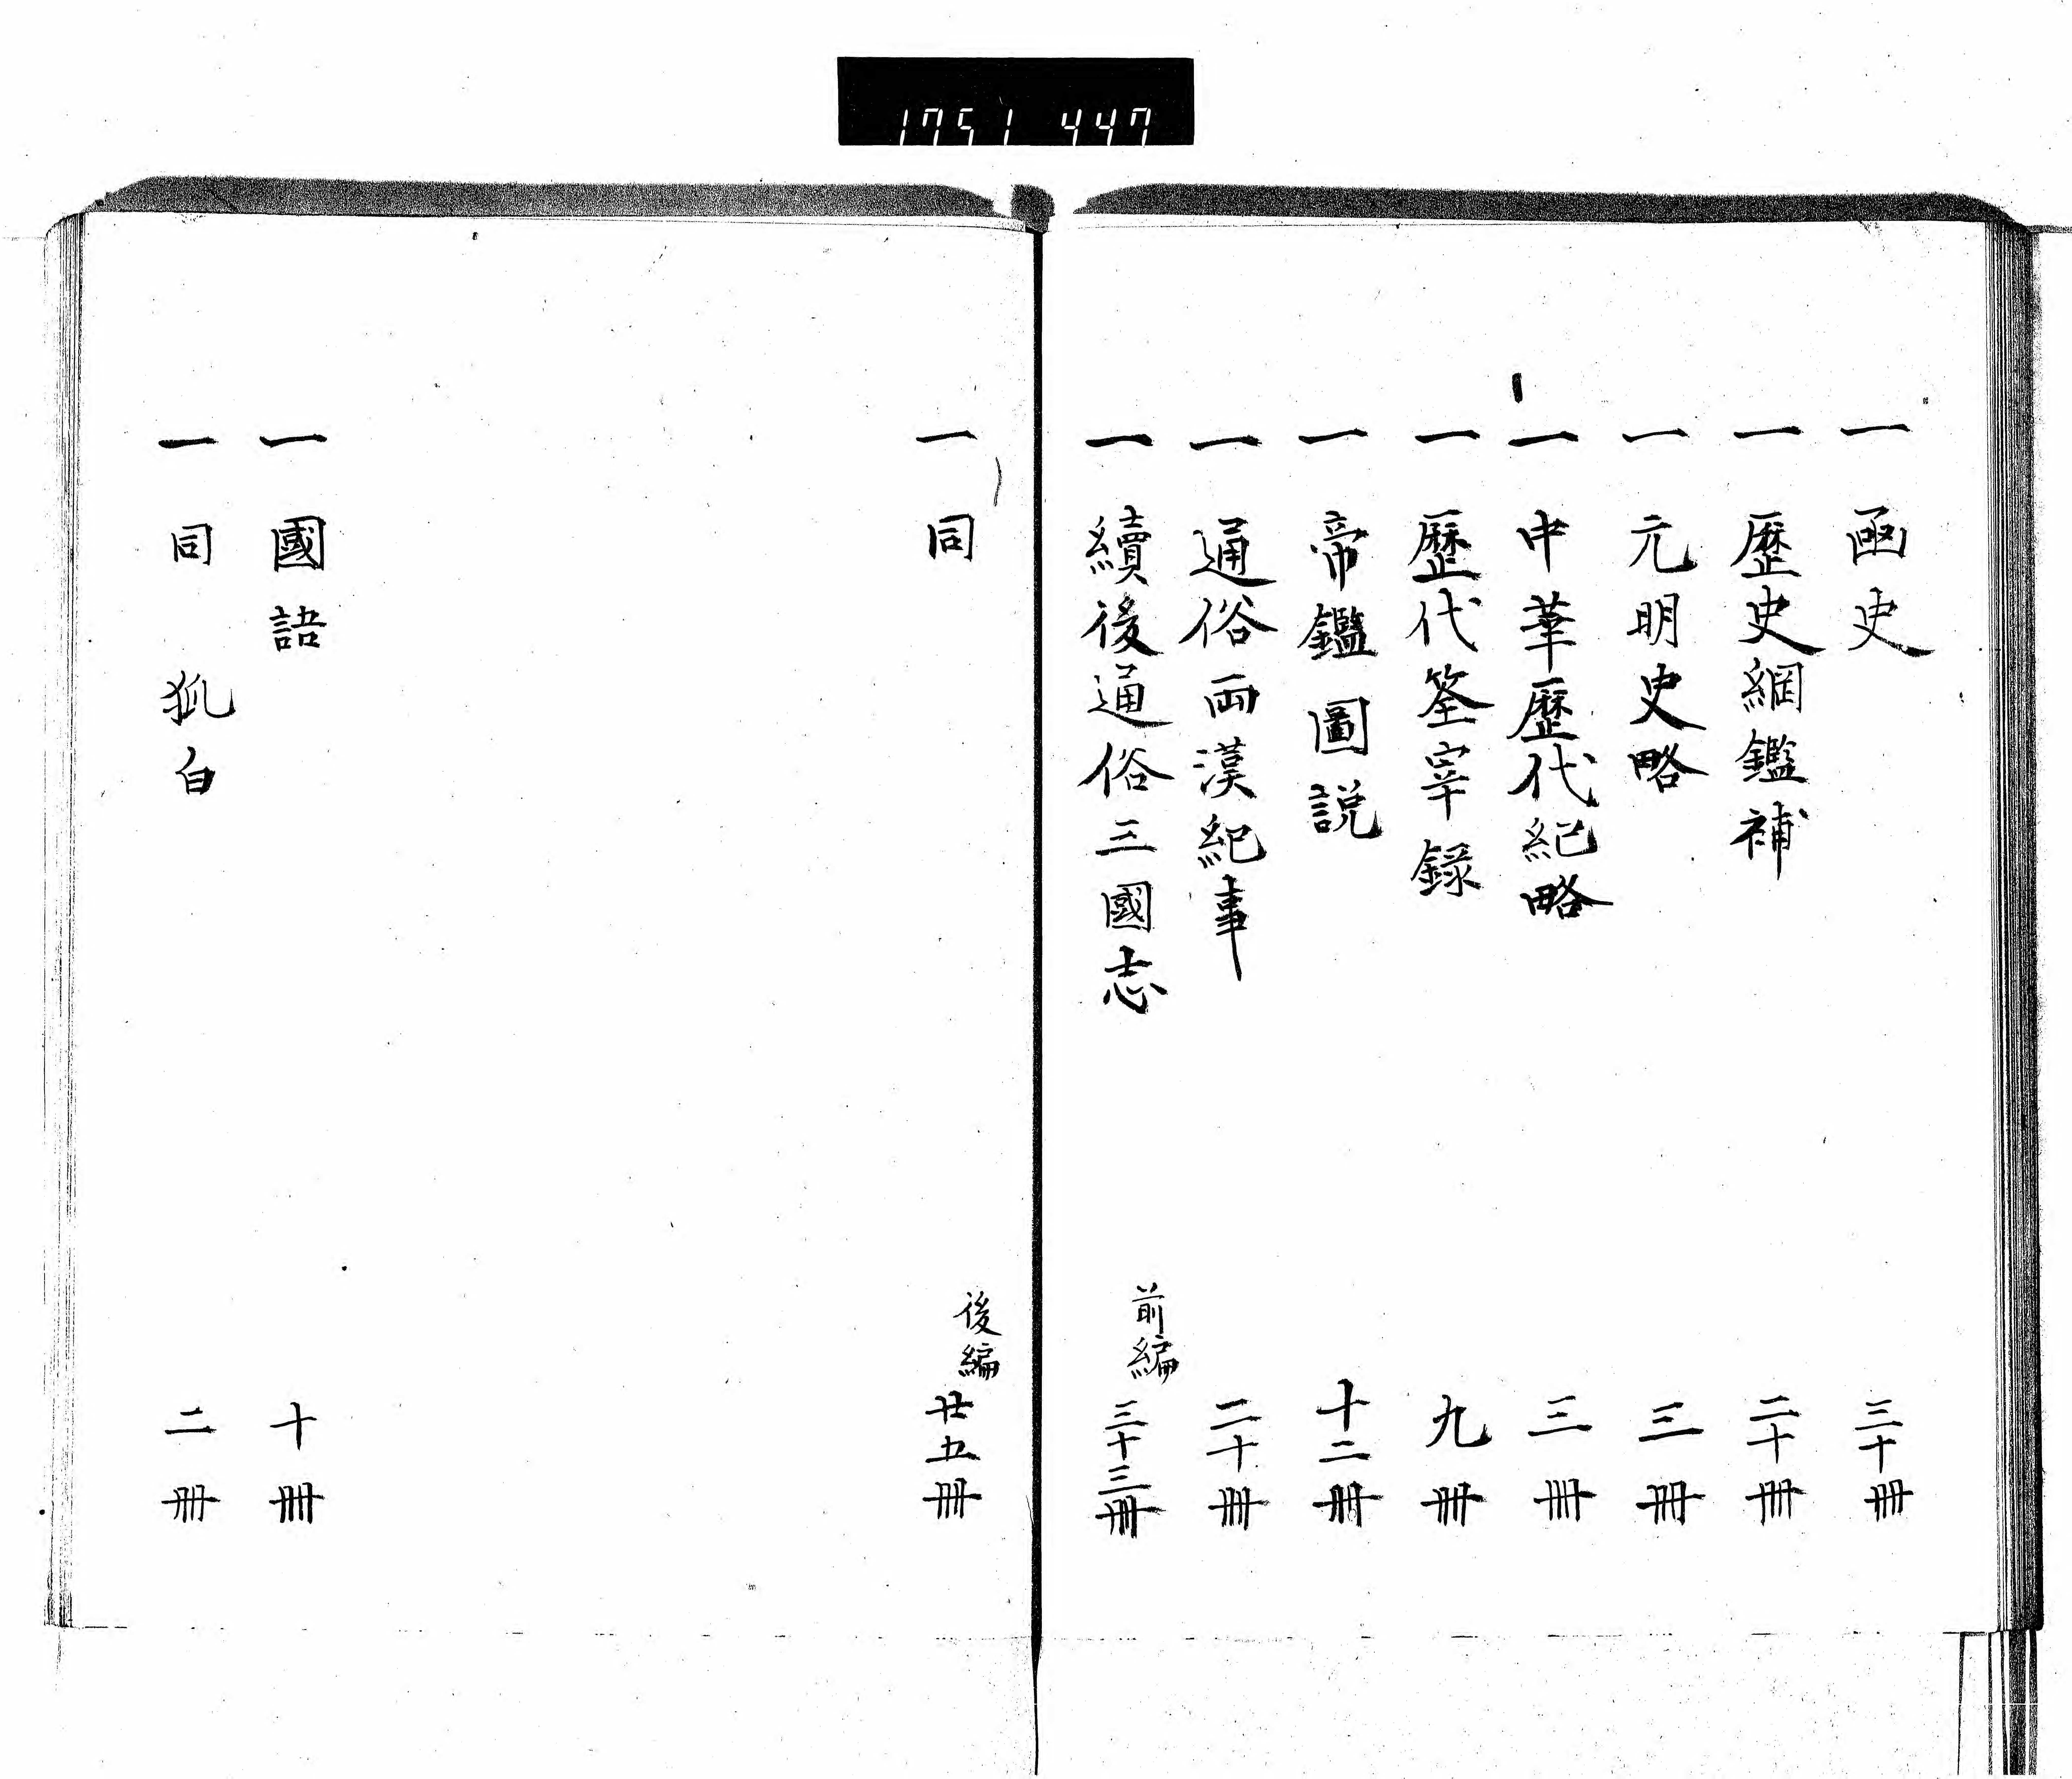 1751 447
一 函史 三十冊
一 歴史綱鑑補 二十冊
一 元明史略 三冊
一 中華歴代紀略 三冊
一 歴代筌宰録 九冊
一 帝鑑圖説 十二冊
一 通俗両漢紀事 二十冊
一 續後通俗三國志 前編 三十三冊
一 同 後編 廿五冊
一 國語 十冊
一 同 狐白 二冊